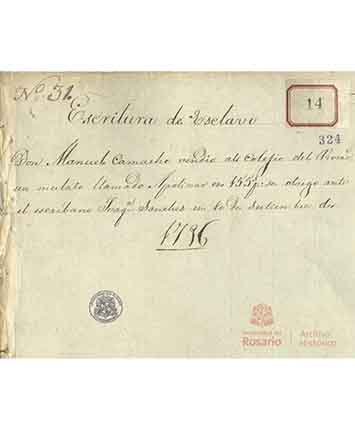 No. 31.
14
Escritura de Esclavo
324
Don Manuel Camacho vendió al Colegio del Rosario
un mulato llamado Apolinar en 155 ps. se otorgó ante
el escribano Joaqn. Sanches en 10 de Setiembre de
1736
UNIVERSIDAD DEL
Rosario
Archivo
Histórico